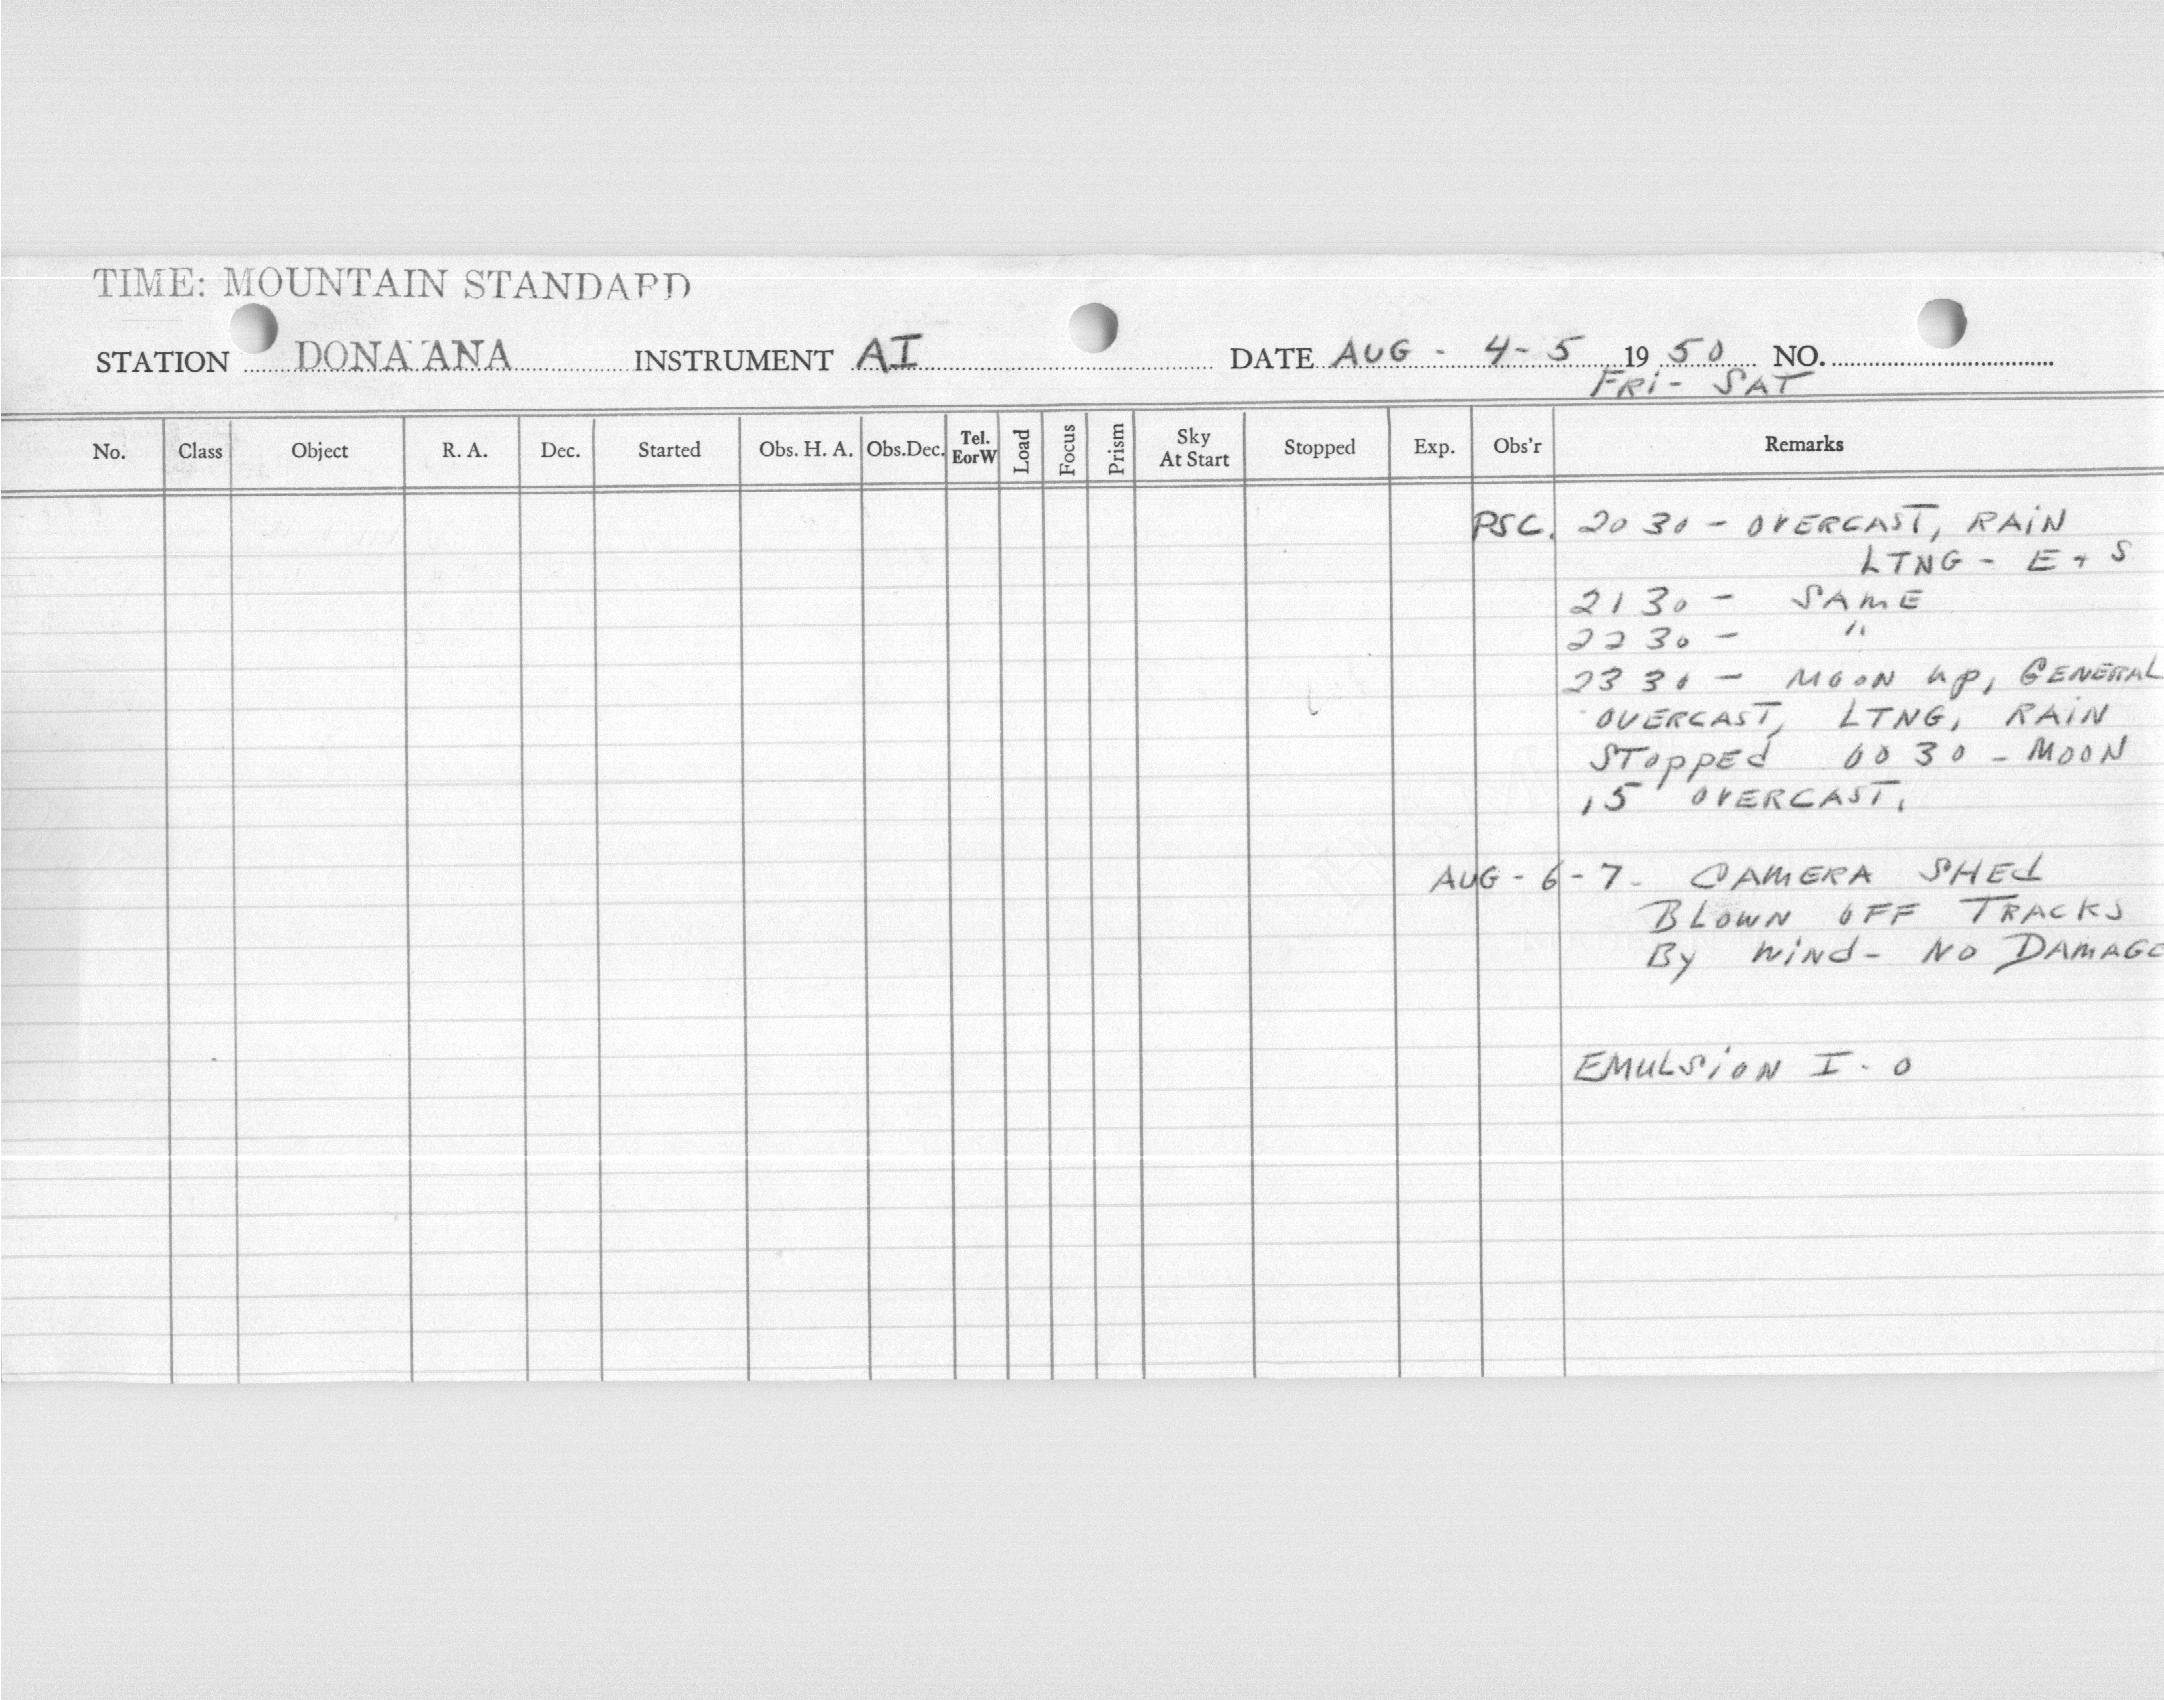 TIME: MOUNTAIN STANDARD
STATION DONA ANA INSTRUMENT AI DATE AUG - 4-5 19 50 NO.
FRI- SAT
No. Class Object R. A. Dec. Started Obs. H. A. Obs.Dec. Tel. EorW Load Focus Prism Sky At Start Stopped Exp. Obs'r Remarks
PSC. 2030 - OVERCAST, RAIN
LTNG - E + S
2130 - SAME
2230 - "
2330 - MOON up, GENERAL
OVERCAST, LTNG, RAIN
STOPPED 0030 - MOON
,5 OVERCAST.
AUG - 6 - 7 - CAMERA SHEd
BLOWN OFF TRACKS
By WiNd - NO DAMAGE
EMULSION I - O